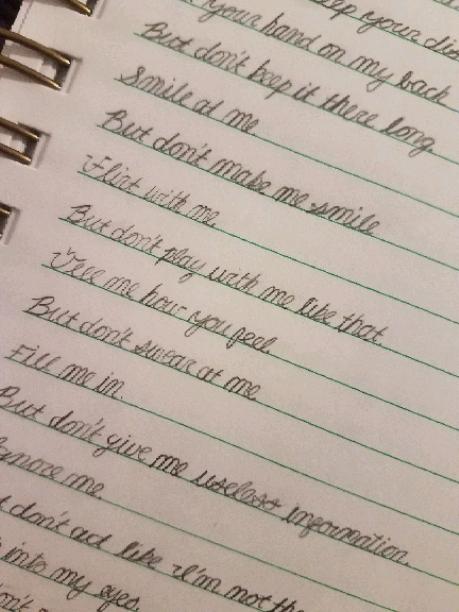 keep your dis
your hand on my back
But don't keep it there long.
Smile at me.
But don't make me smile
Flirt with me.
But don't play with me like that.
Tell me how you feel.
But don't swear at me.
Fill me in.
But don't give me useless information.
Ignore me.
don't act like I'm not the
into my eyes.